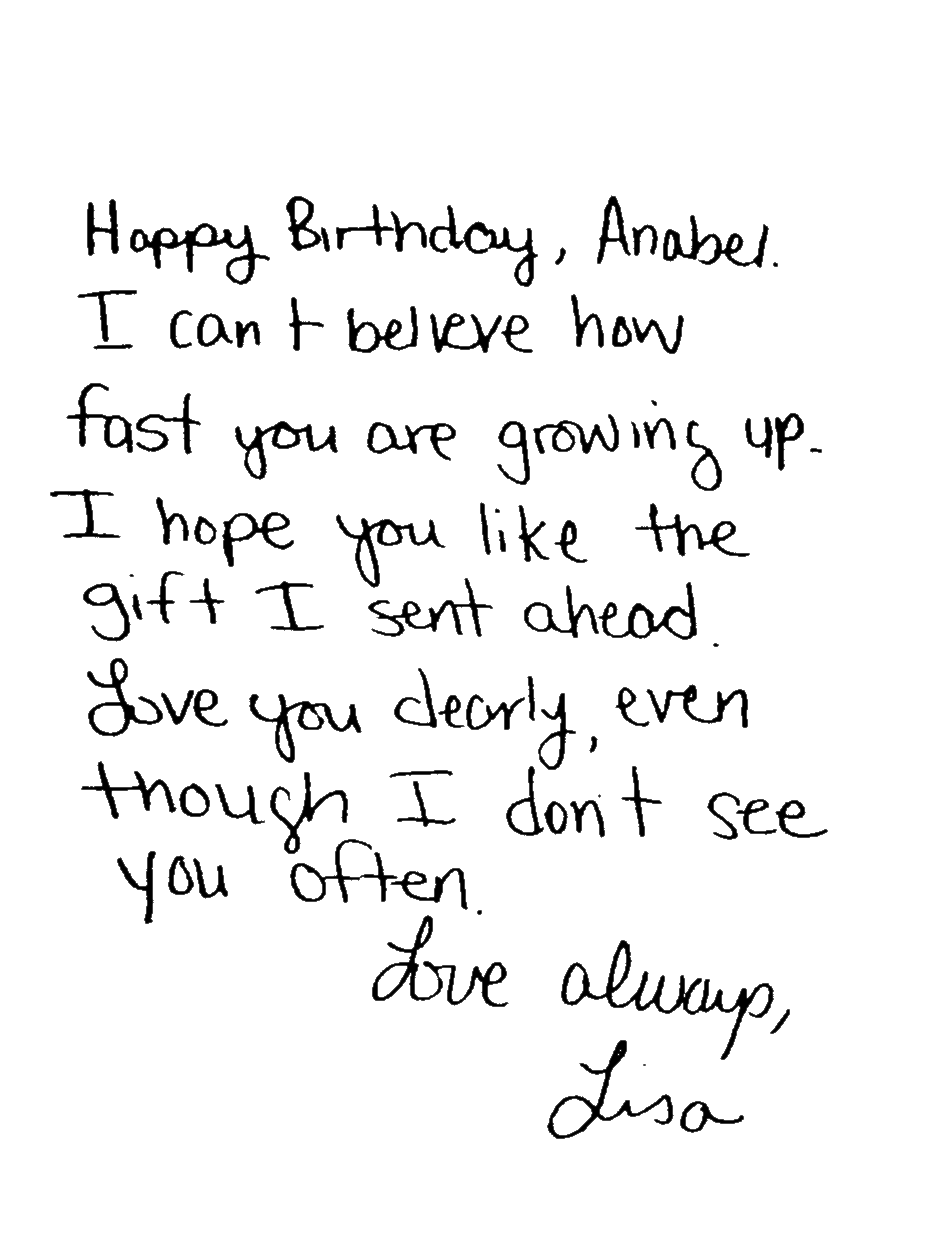 Happy Birthday, Anabel.
I can't believe how
fast you are growing up.
I hope you like the
gift I sent ahead.
Love you dearly, even
though I don't see
you often.
Love always,
Lisa